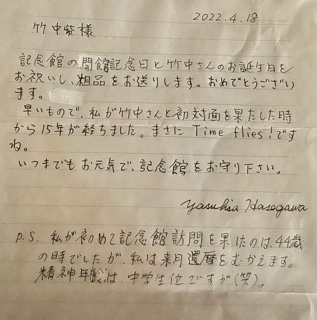 2022.4.18
竹中紫様
記念館の開館記念日と竹中さんのお誕生日を
お祝いし、粗品をお送りします。おめでとうござい
ます。
早いもので、私が竹中さんと初対面を果たした時
から15年が経ちました。まさにTime flies!です
ね。
いつまでもお元気で、記念館をお守り下さい。
Yasuhisa Hasegawa
P.S. 私が初めて記念館訪問を果たしたのは44歳
の時でしたが、私は来月還暦をむかえます。
精神年齢は、中学生位ですが(笑)。